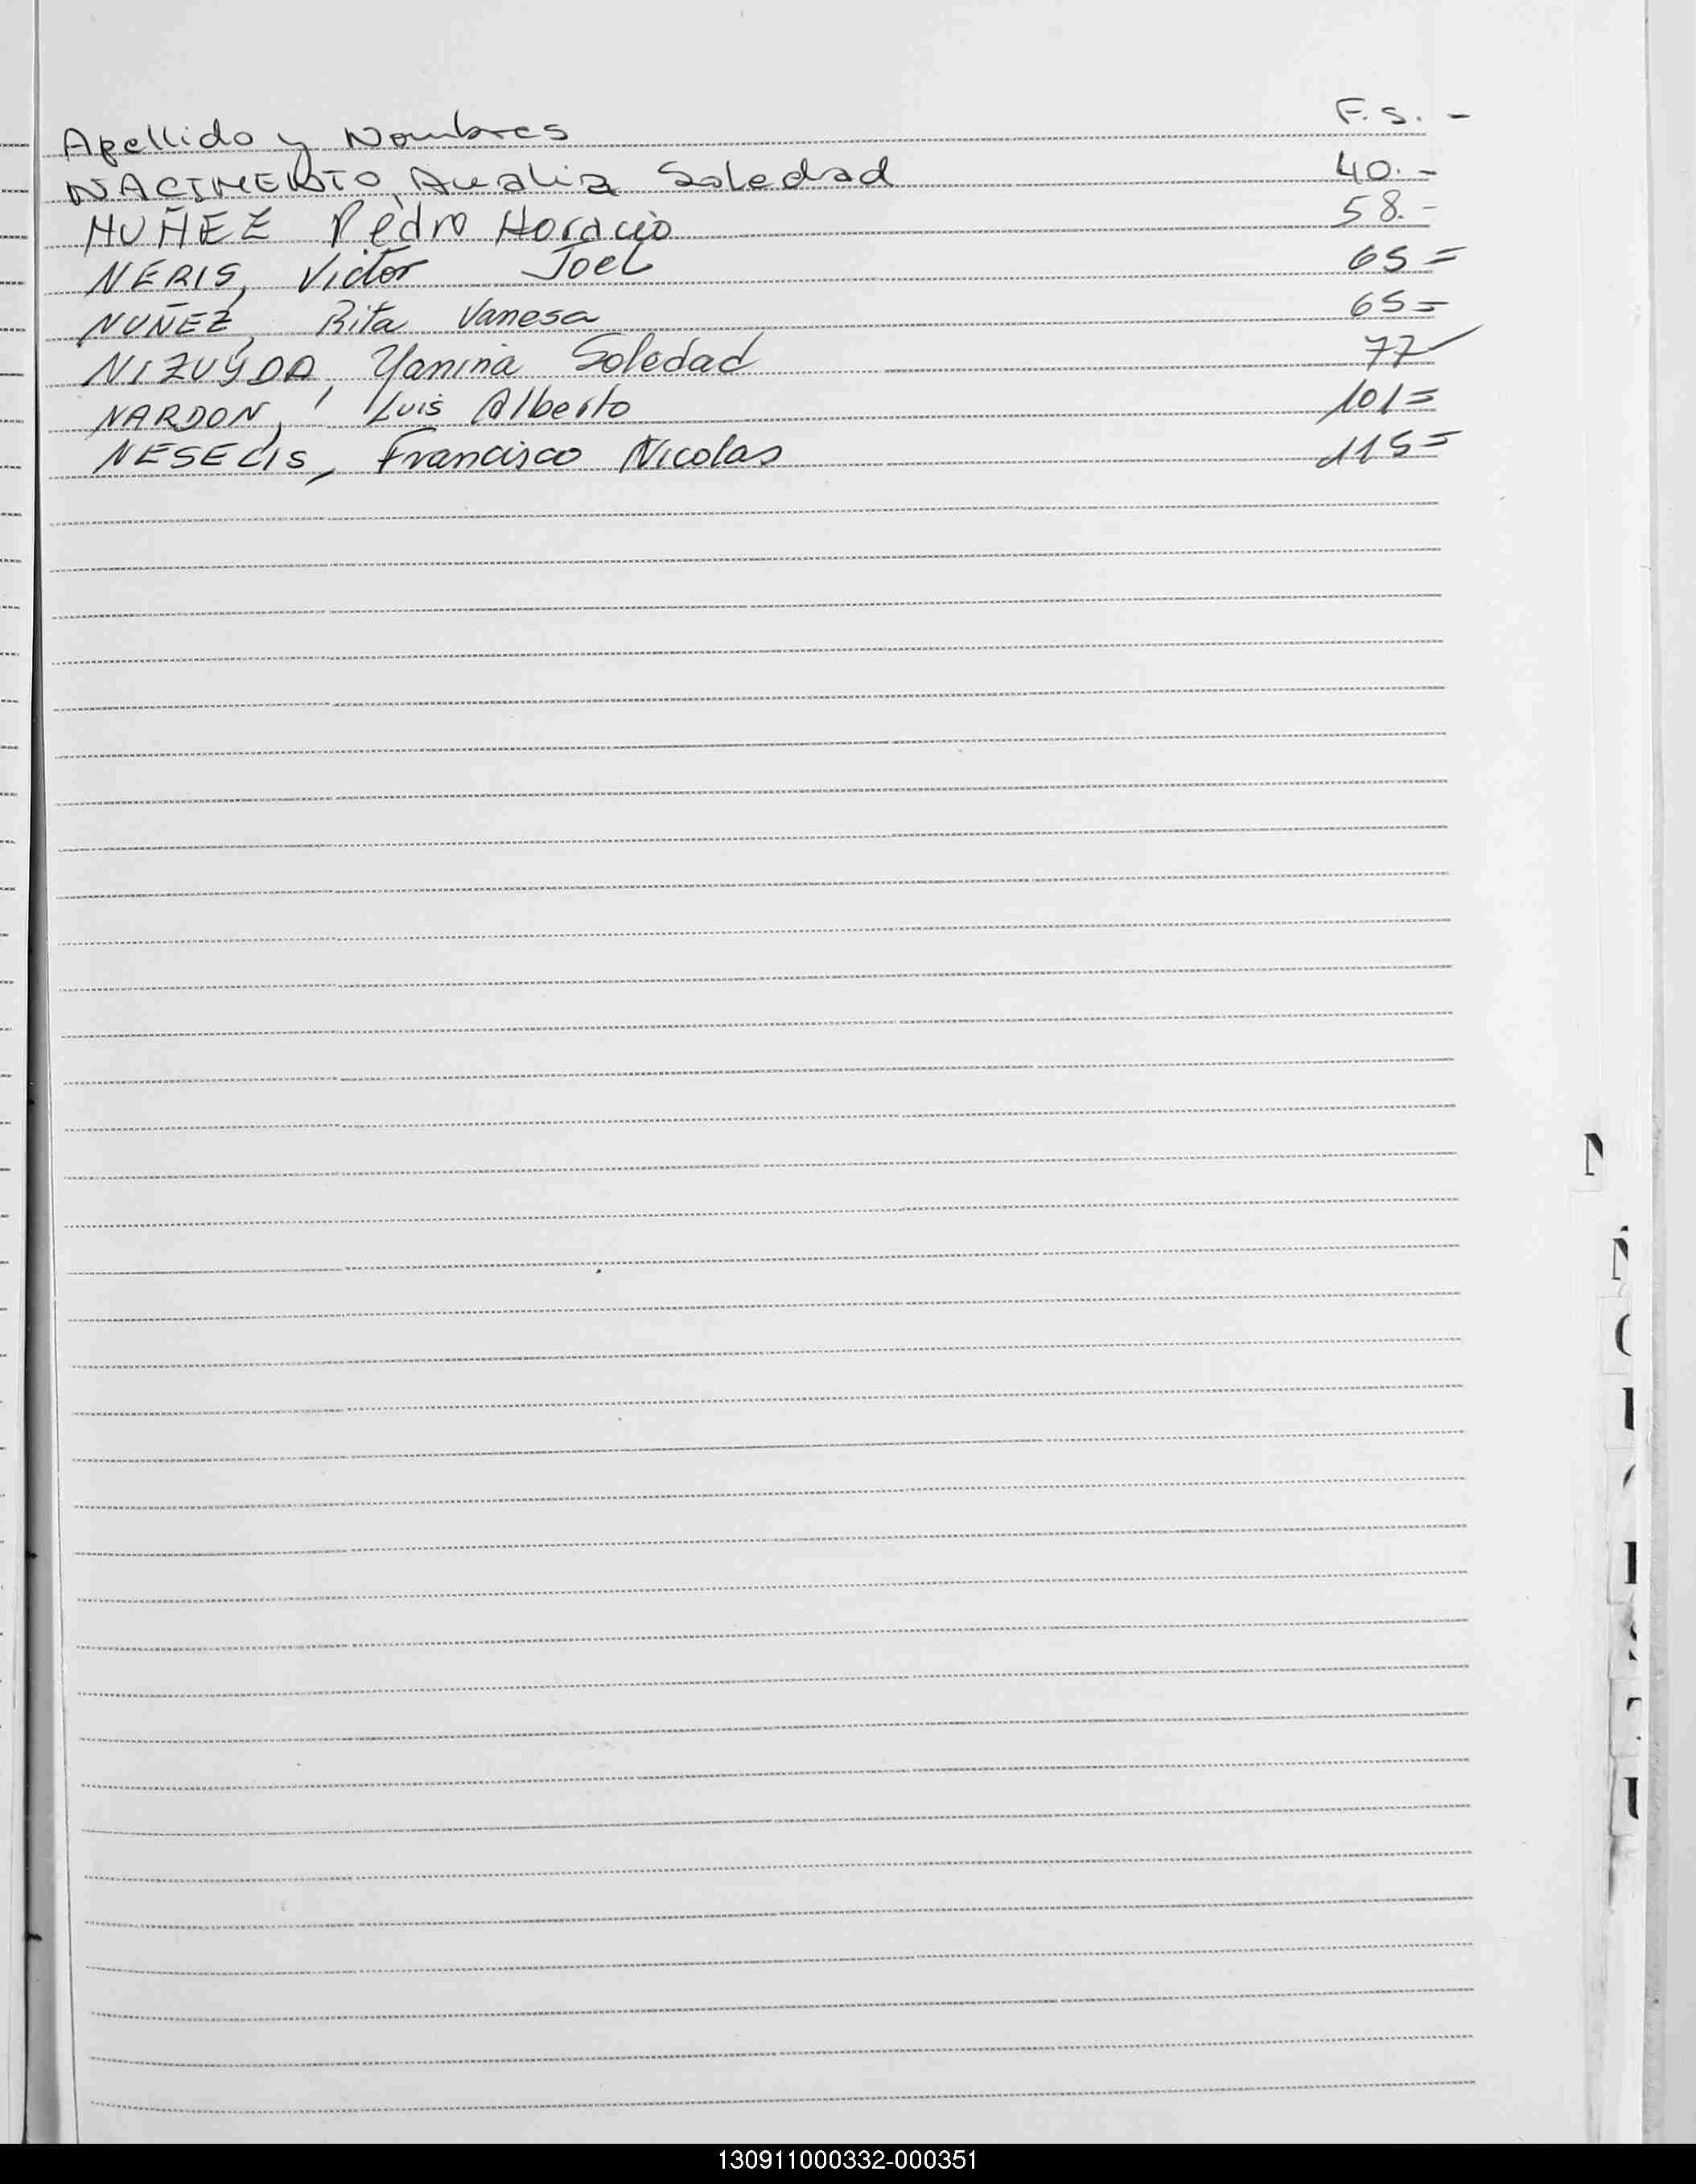 Apellido y Nombres F. S. -
NACIMENTO, Analia Soledad 40.-
NUÑEZ Pedro Horacio 58.-
NERIS, Victor Joel 65=
NUÑEZ, Rita Vanesa 65=
NIZUYDA, Yanina Soledad 77
NARDON, Luis Alberto 101=
NESECIS, Francisco Nicolas 115=
N
Ñ
130911000332-000351